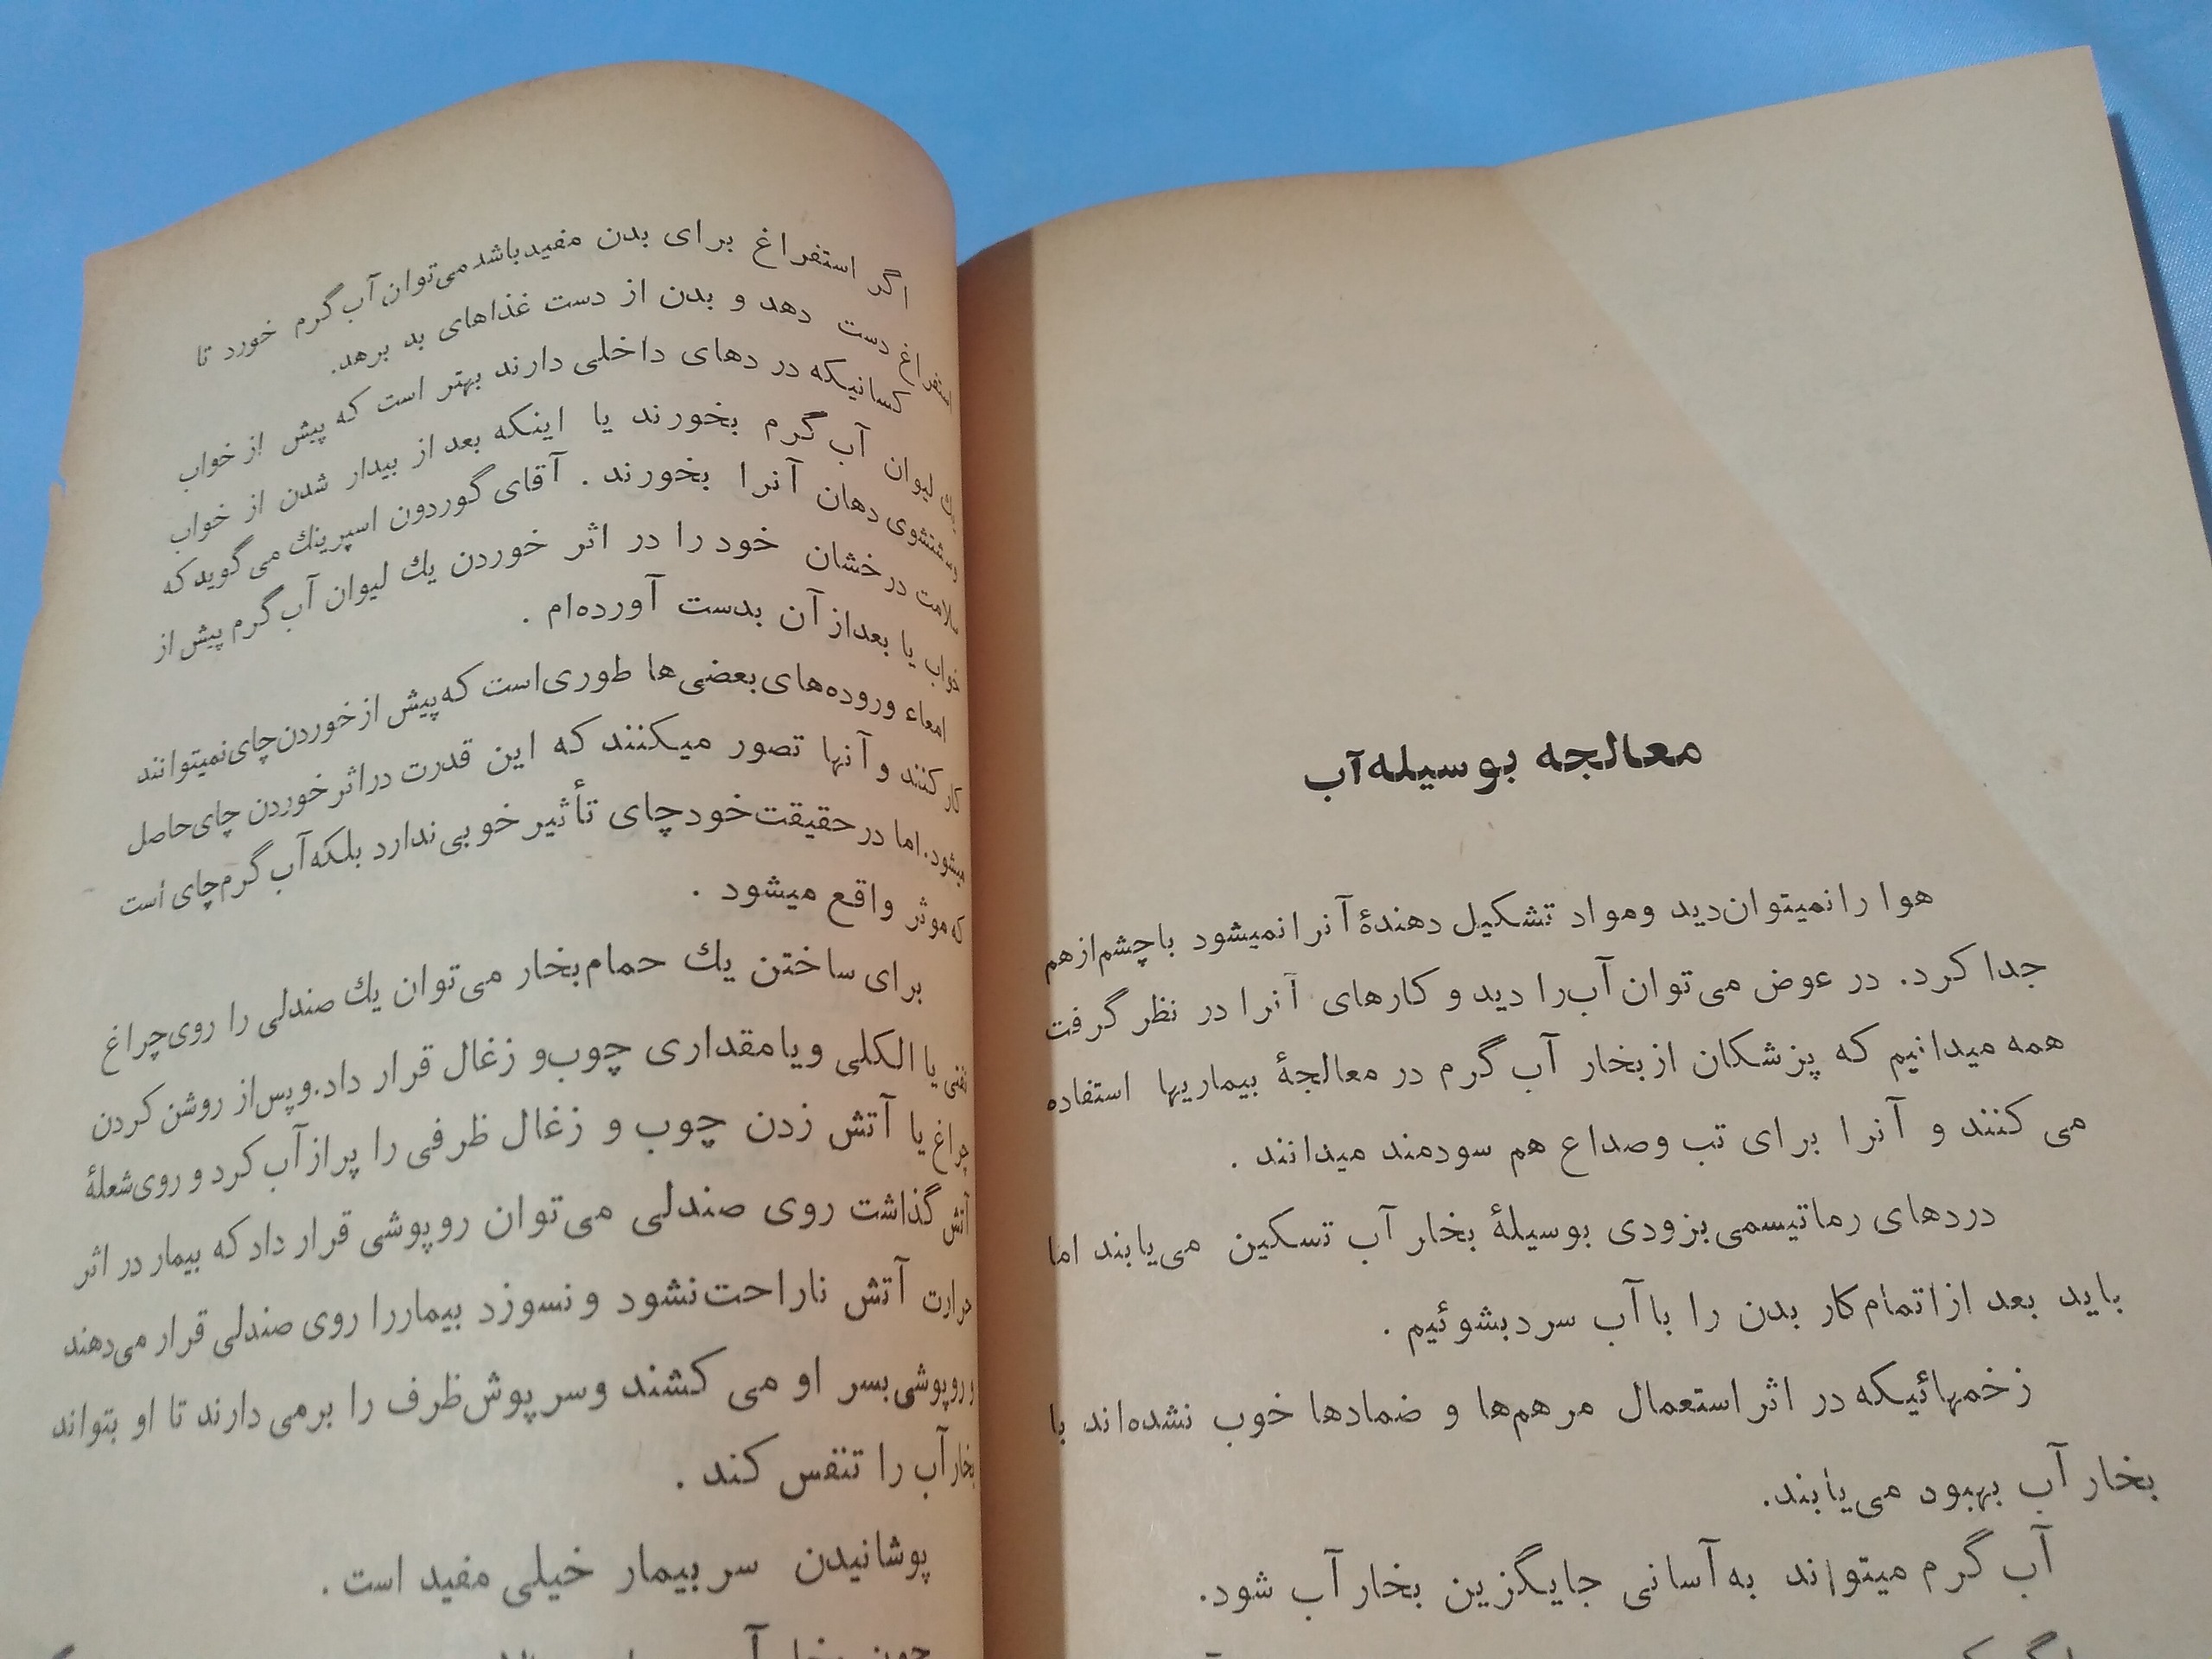 معالجه بوسیله‌آب
هوا را نمیتوان‌دید ومواد تشکیل دهندهٔ آنرا نمیشود باچشم‌ازهم
جدا کرد. در عوض می‌توان آب‌را دید و کارهای آنرا در نظر گرفت
همه میدانیم که پزشکان از بخار آب گرم در معالجهٔ بیماریها استفاده
می کنند و آنرا برای تب وصداع هم سودمند میدانند .
دردهای رماتیسمی بزودی بوسیلهٔ بخار آب تسکین می‌یابند اما
باید بعد ازاتمام‌کار بدن را با آب سردبشوئیم .
زخمهائیکه در اثر استعمال مرهم‌ها و ضمادها خوب نشده‌اند با
بخار آب بهبود می‌یابند.
آب گرم میتواند به‌آسانی جایگزین بخار آب شود.
اگر استفراغ برای بدن مفیدباشد می‌توان آب گرم خورد تا
استفراغ دست دهد و بدن از دست غذاهای بد برهد.
کسانیکه در دهای داخلی دارند بهتر است که پیش از خواب
یك لیوان آب گرم بخورند یا اینکه بعد از بیدار شدن از خواب
وشتشوی دهان آنرا بخورند . آقای گوردون اسپرینك می گوید که
سلامت درخشان خود را در اثر خوردن یك لیوان آب گرم پیش از
خواب یا بعداز آن بدست آورده‌ام .
امعاء وروده‌های بعضی‌ها طوری‌است که پیش ازخوردن‌چای‌نمیتوانند
کار کنند و آنها تصور میکنند که این قدرت دراثر خوردن چای‌حاصل
میشود. اما در حقیقت‌خود چای تأثیر خوبی‌ندارد بلکه آب گرم‌چای است
که موثر واقع میشود .
برای ساختن یك حمام‌بخار می‌توان یك صندلی را روی‌چراغ
نفتی یا الکلی و یا مقداری چوب‌و زغال قرار داد.وپس‌از روشن کردن
چراغ یا آتش زدن چوب و زغال ظرفی را پر از آب کرد و روی‌شعلهٔ
آتش گذاشت روی صندلی می‌توان روپوشی قرار داد که بیمار در اثر
حرارت آتش ناراحت‌نشود و نسوزد بیماررا روی صندلی قرار می‌دهند
و روپوشی‌بسر او می کشند وسر پوش‌ظرف را برمی دارند تا او بتواند
بخار آب را تنفس کند .
پوشانیدن سر بیمار خیلی مفید است .